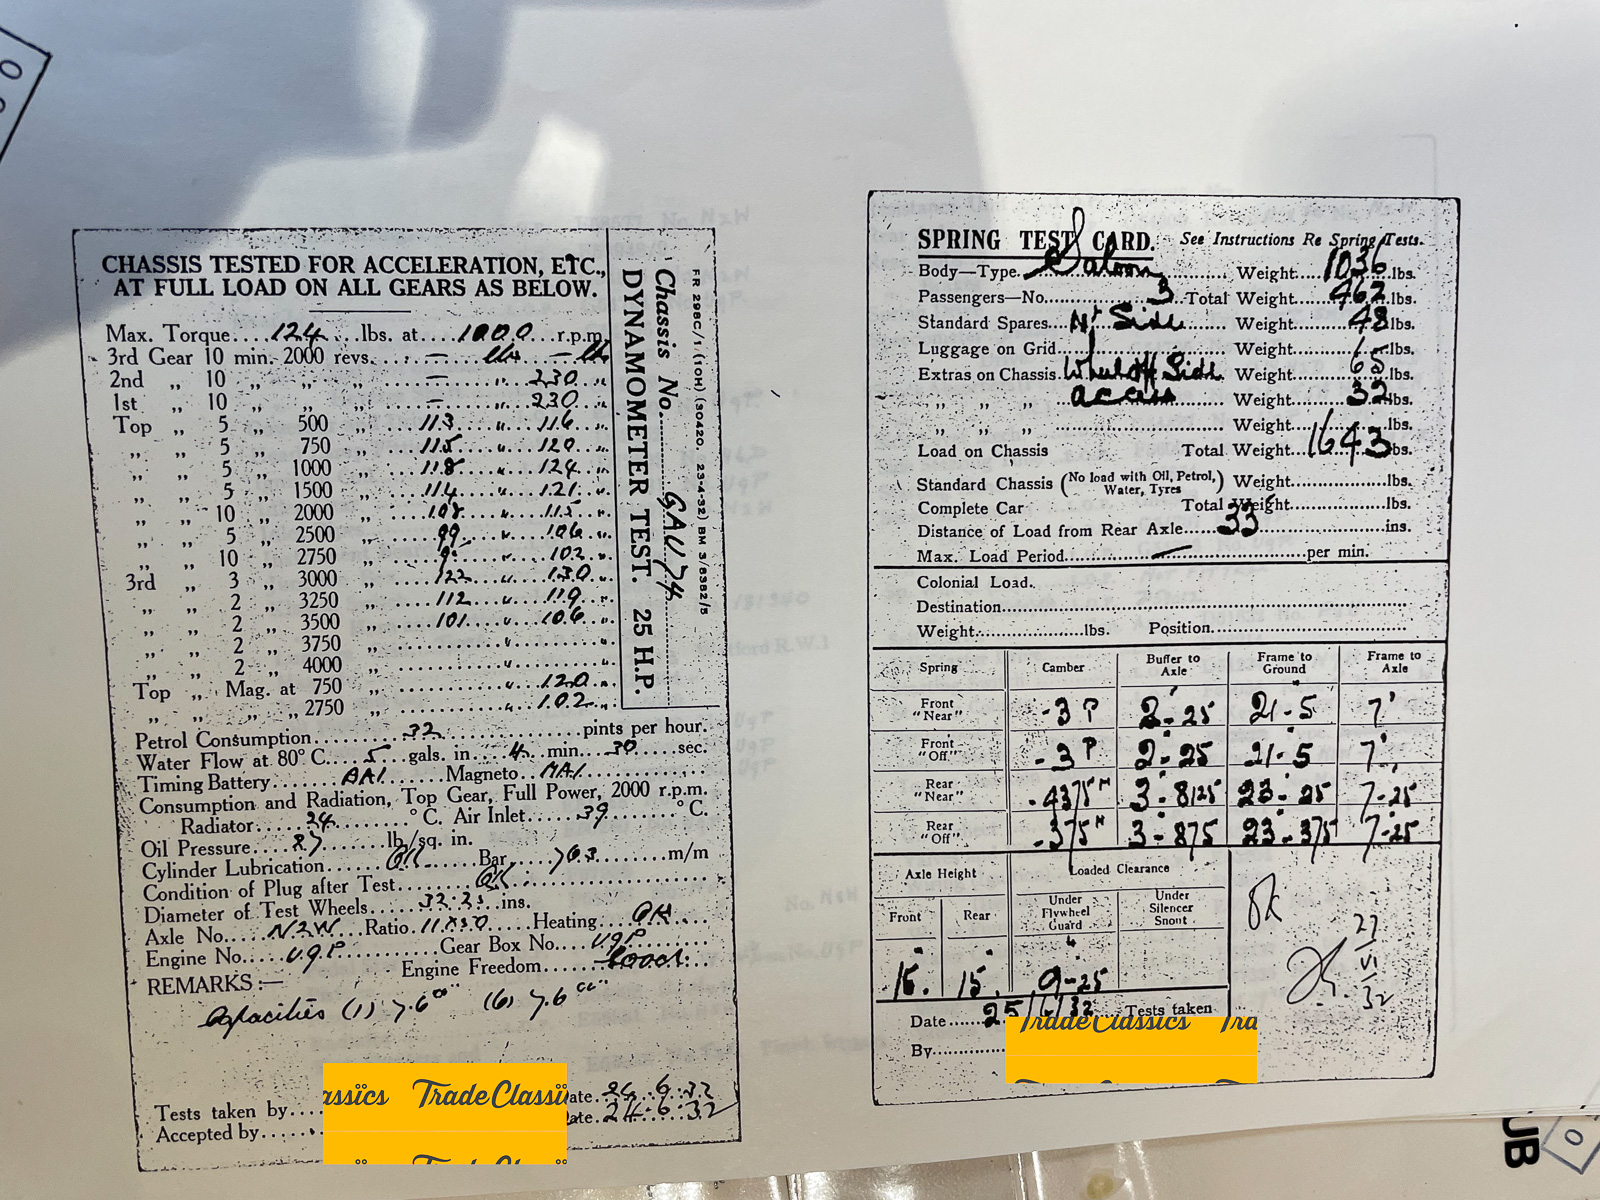 CHASSIS TESTED FOR ACCELERATION, ETC.,
AT FULL LOAD ON ALL GEARS AS BELOW.
Max. Torque....124...lbs. at....1000...r.p.m.
3rd Gear 10 min. 2000 revs. — lbs — lbs
2nd ,, 10 ,, ,, ,, — ,, 230 ,,
1st ,, 10 ,, ,, ,, — ,, 230 ,,
Top ,, 5 ,, 500 ,, 113 ,, 116 ,,
,, ,, 5 ,, 750 ,, 115 ,, 120 ,,
,, ,, 5 ,, 1000 ,, 118 ,, 124 ,,
,, ,, 5 ,, 1500 ,, 114 ,, 121 ,,
,, ,, 10 ,, 2000 ,, 108 ,, 115 ,,
,, ,, 5 ,, 2500 ,, 99 ,, 106 ,,
,, ,, 10 ,, 2750 ,, ,, 102 ,,
3rd ,, 3 ,, 3000 ,, 122 ,, 130 ,,
,, ,, 2 ,, 3250 ,, 112 ,, 119 ,,
,, ,, 2 ,, 3500 ,, 101 ,, 106 ,,
,, ,, 2 ,, 3750 ,, ,, ,,
,, ,, 2 ,, 4000 ,, ,, ,,
Top ,, Mag. at 750 ,, 120 ,,
,, ,, ,, ,, 2750 ,, 102 ,,
Petrol Consumption....32....pints per hour.
Water Flow at 80° C....5...gals. in...4...min...30...sec.
Timing Battery....AA1.....Magneto..MA1....
Consumption and Radiation, Top Gear, Full Power, 2000 r.p.m.
Radiator....24....° C. Air Inlet....39....° C.
Oil Pressure....27....lb/sq. in.
Cylinder Lubrication....OK....Bar....763....m/m
Condition of Plug after Test....OK....
Diameter of Test Wheels....32.25...ins.
Axle No....N2W...Ratio.11X50...Heating...OK...
Engine No....U9P....Gear Box No....U9P....
Engine Freedom....Good..
REMARKS :—
Capacities (1) 7.6"" (6) 7.6""
Tests taken by.... Date..24.6.32
Accepted by.... Date..24.6.32
FR 298C/1.(10H) (30420. 23-4-32) BM 3/8382/5
Chassis No....GAU74
DYNAMOMETER TEST. 25 H.P.
SPRING TEST CARD. See Instructions Re Spring Tests.
Body—Type...Saloon... Weight...1036..lbs.
Passengers—No....3..Total Weight...462..lbs.
Standard Spares....Nr Side.... Weight....48lbs.
Luggage on Grid.... Weight....lbs.
Extras on Chassis.Wheel Off Side. Weight...65..lbs.
,, ,, ,, ..acces... Weight....32.lbs.
,, ,, ,, .... Weight....lbs.
Load on Chassis Total Weight..1643lbs.
Standard Chassis (No load with Oil, Petrol, Water, Tyres) Weight....lbs.
Complete Car Total Weight....lbs.
Distance of Load from Rear Axle....33....ins.
Max. Load Period....—....per min.
Colonial Load.
Destination....
Weight....lbs. Position....
Spring Camber Buffer to Axle Frame to Ground Frame to Axle
Front "Near" -3 P 2-25 21-5 7"
Front "Off" -3 P 2-25 21-5 7"
Rear "Near" -4375 N 3-8125 23-25 7-25
Rear "Off" -375 N 3-875 23-375 7-25
Axle Height Loaded Clearance
Front Rear Under Flywheel Guard Under Silencer Snout
15. 15. 9-25
OK
27
VI
32
Date....25/6/32 Tests taken
By....
TradeClassics Tra
assics TradeClassi
JB